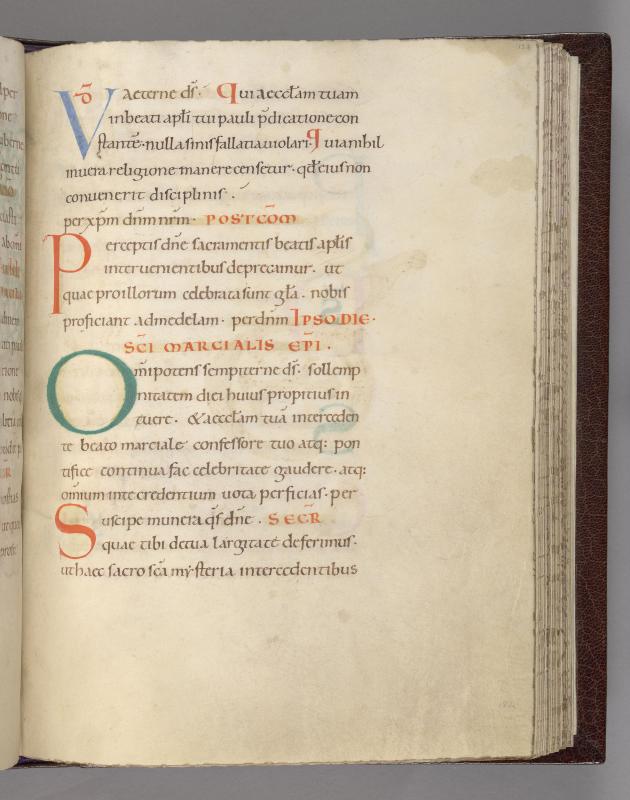 VD Aeterne ds̄. Qui aeccl̄am tuam
inbeati apl̄i tui pauli p̄dicatione con
stantē. nulla sinis fallatia violari. Quia nihil
in uera religione manere censetur. qd̄ eius non
conuenerit disciplinis.
per xp̄m dn̄m nr̄m. POSTCOM̄
Perceptis dn̄e sacramentis beatis apl̄is
interuenientibus deprecamur. ut
quae pro illorum celebrata sunt gl̄a. nobis
proficiant ad medelam. per dn̄m IPSO DIE.
SC̄I MARCIALIS EP̄I.
Omīpotens sempiterne ds̄. sollemp
nitatem diei huius propitius in
tuere. & aeccl̄am tuā interceden
te beato marciale confessore tuo atq: pon
tifice continua fac celebritate gaudere. atq:
omīum in te credentium uota perficias. per
Suscipe munera qs̄ dn̄e. SECR̄
quae tibi de tua largitate deferimus.
ut haec sacrosc̄a mysteria intercedentibus